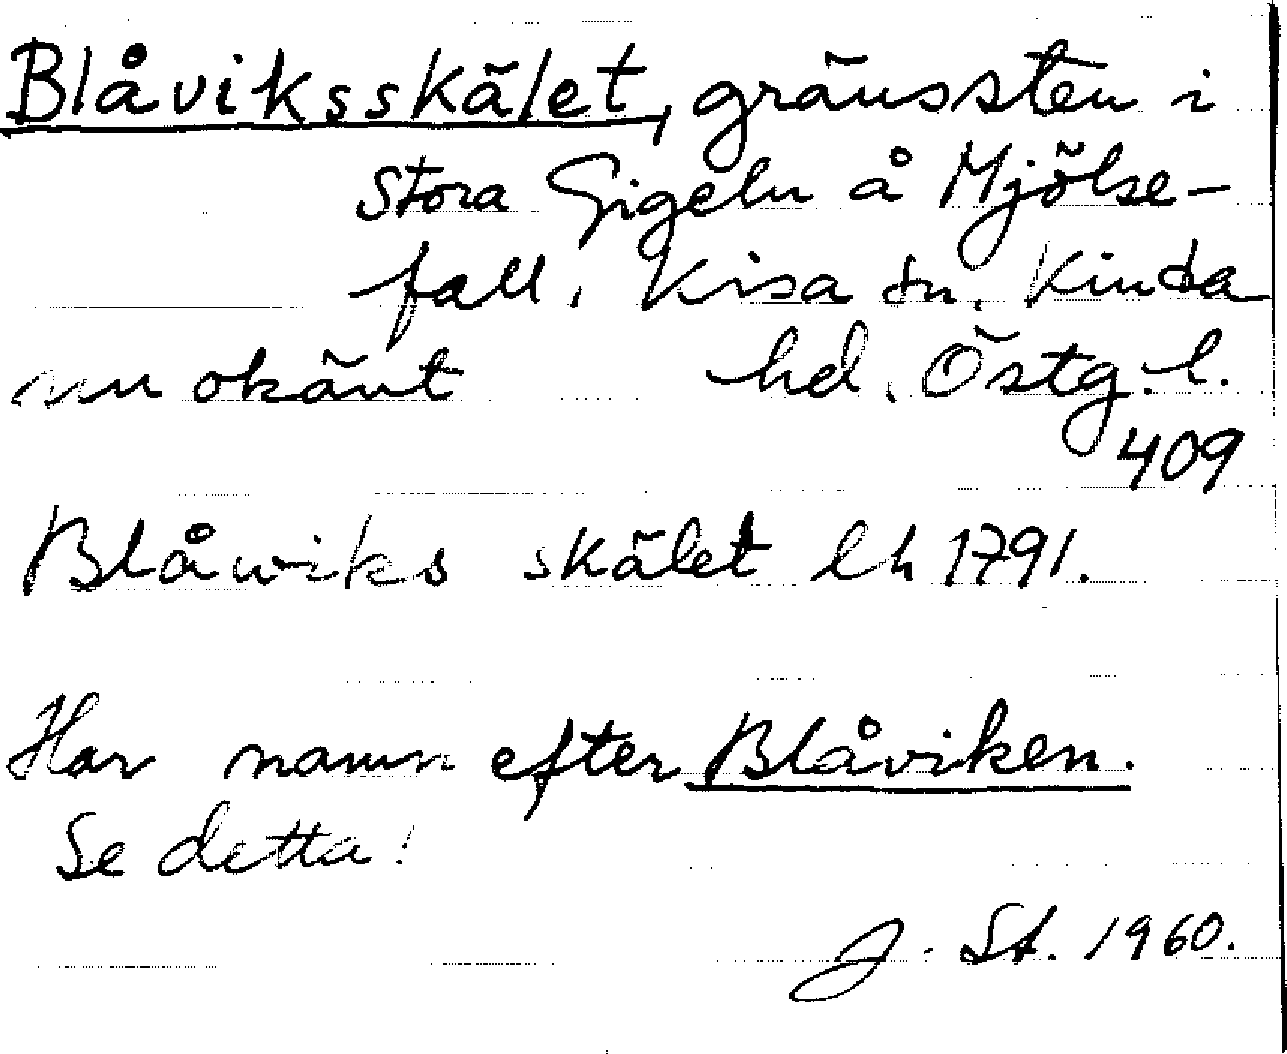 Blåviksskälet, gränssten i
Stora Gigeln å Mjölse-
fall, Kisa sn. Kinda
nu okänt hd. Östg. l.
409
Blåwiks skälet lh 1791.
Har namn efter Blåviken.
Se detta!
J. St. 1960.